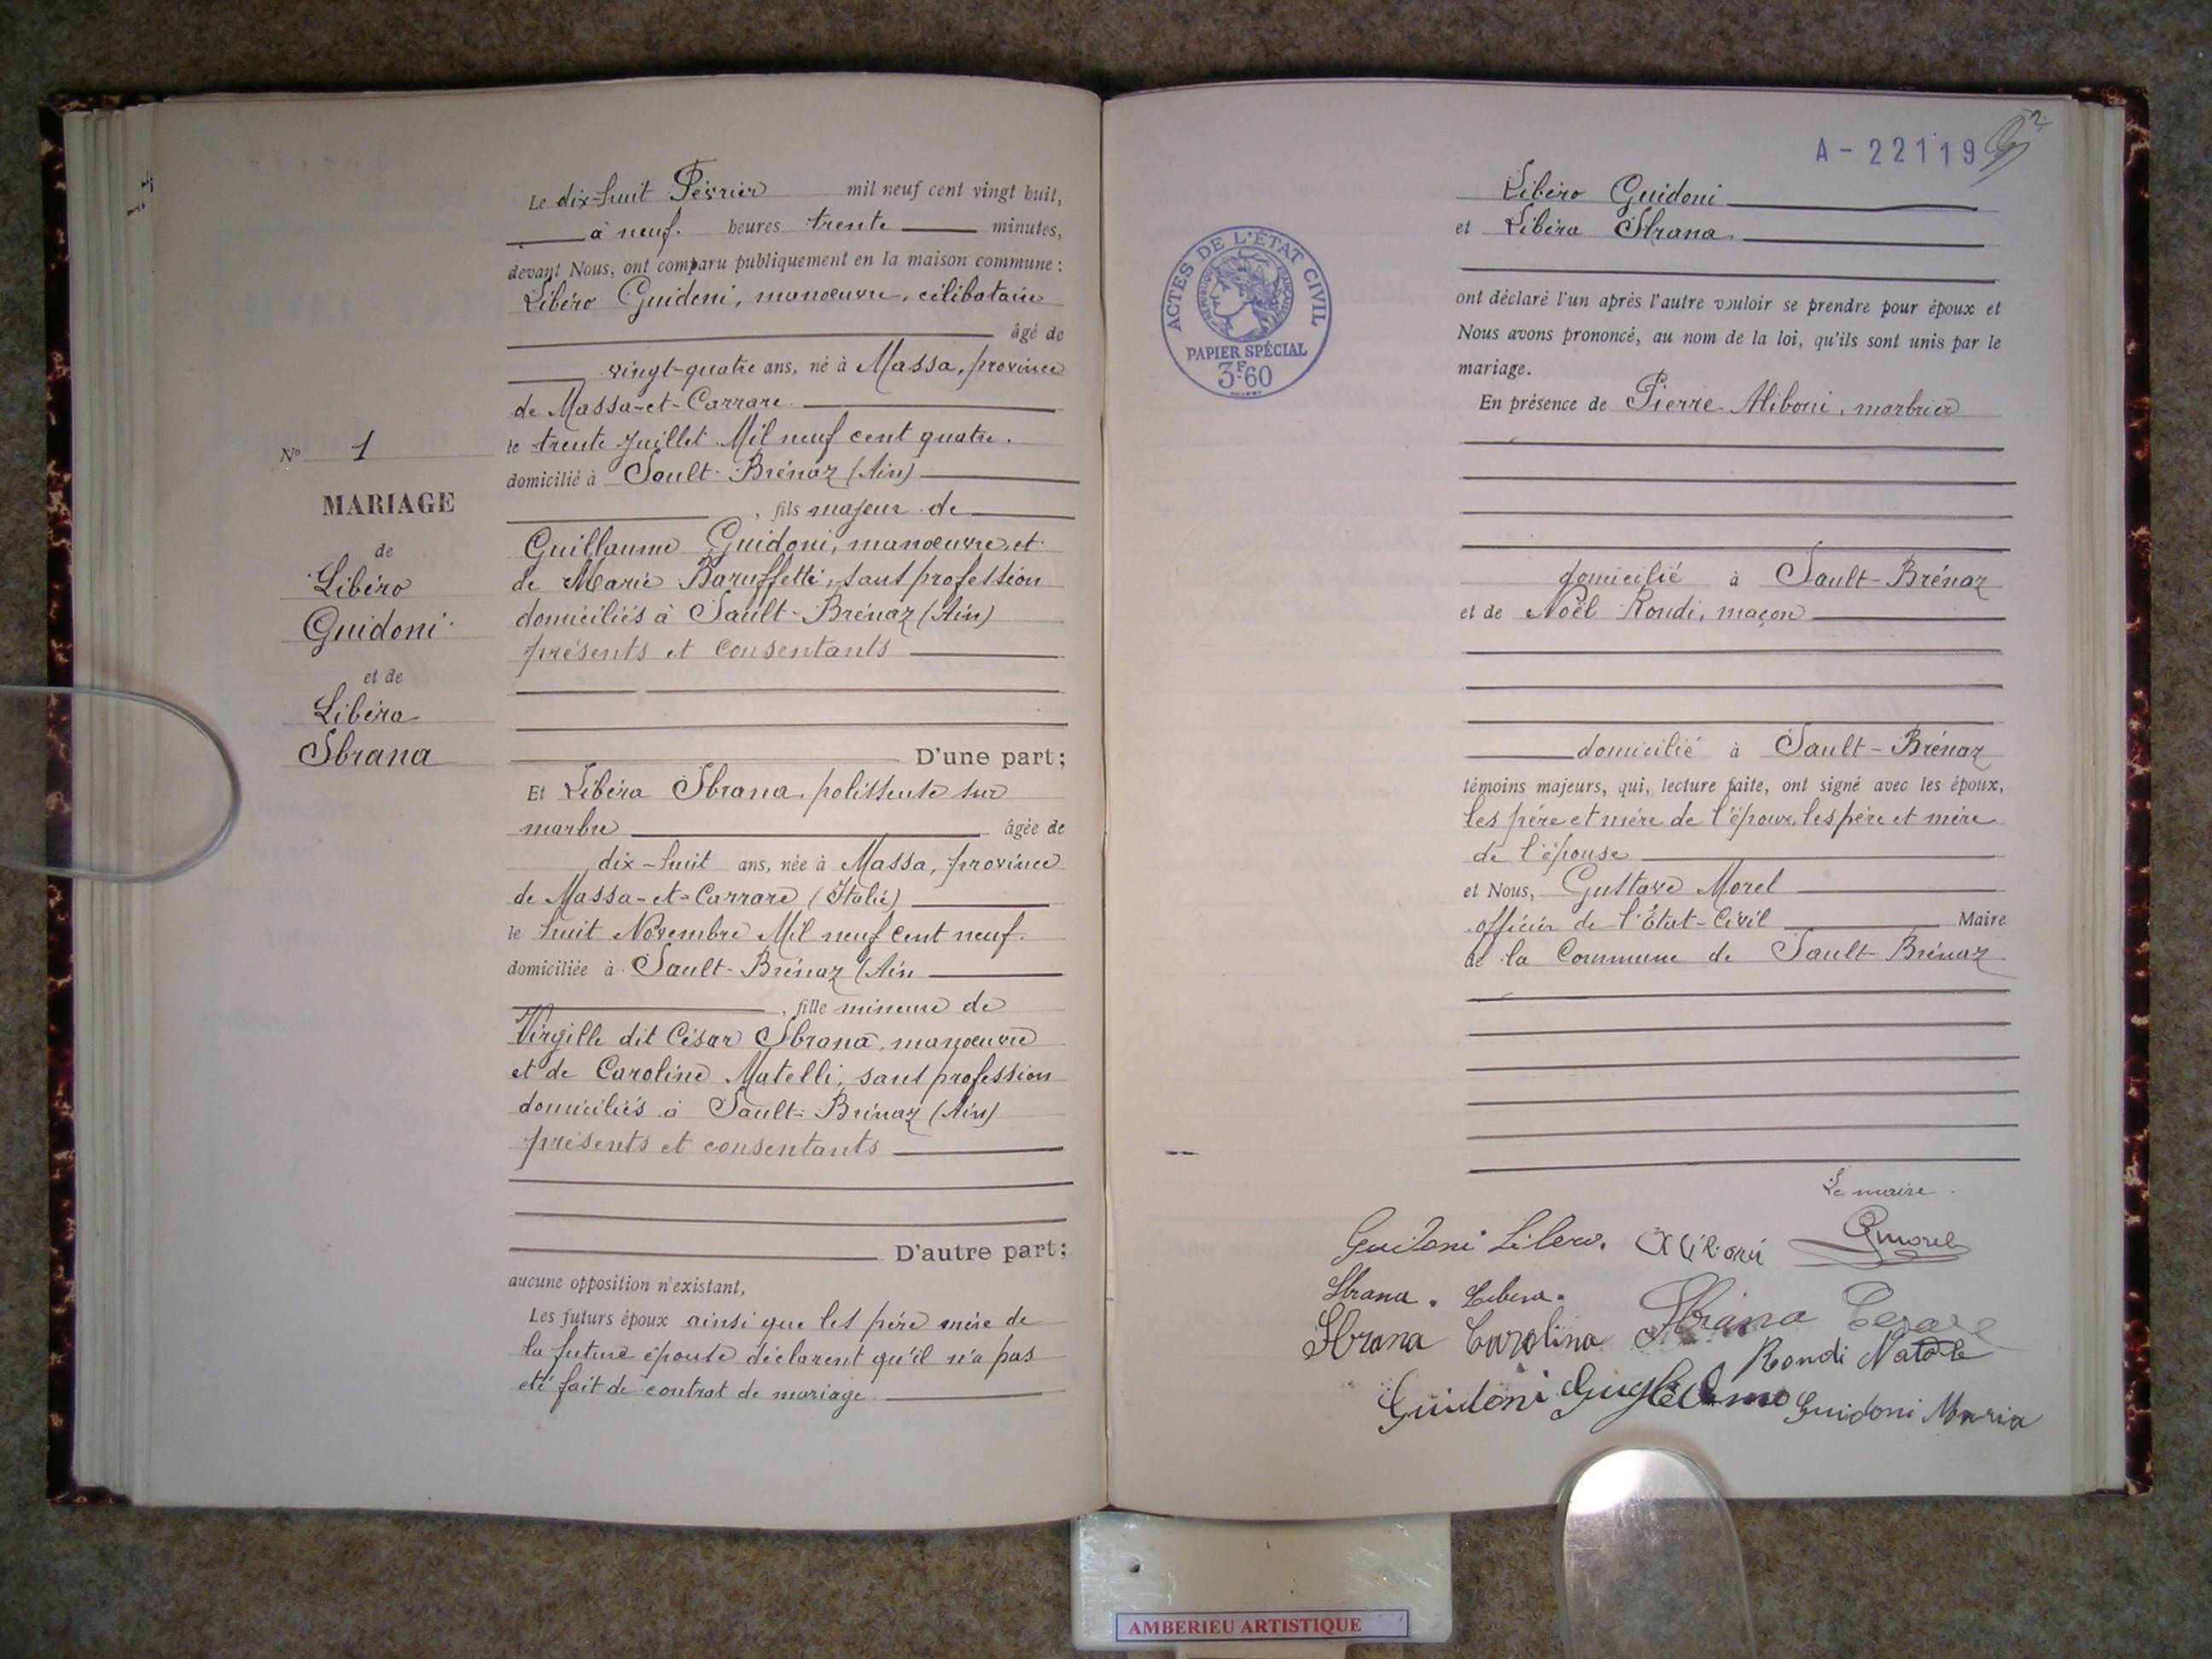 Le dix-huit Février mil neuf cent vingt huit,
à neuf. heures trente minutes,
devant Nous, ont comparu publiquement en la maison commune :
Libéro Guidoni, manœuvre, célibataire
âgé de
vingt-quatre ans, né à Massa, province
de Massa-et-Carrare
le trente Juillet Mil neuf cent quatre.
domicilié à Sault-Brénaz (Ain)
, fils majeur de
Guillaume Guidoni, manœuvre, et
de Marie Baruffetti, sans profession
domiciliés à Sault-Brénaz (Ain)
présents et consentants
D'une part;
Et Libéra Sbrana, polisseuse sur
marbre âgée de
dix-huit ans, née à Massa, province
de Massa-et-Carrare (Italie)
le huit Novembre Mil neuf cent neuf.
domiciliée à Sault-Brénaz (Ain
, fille mineure de
Virgille dit César Sbrana, manœuvre
et de Caroline Matelli, sans profession
domiciliés à Sault-Brénaz (Ain)
présents et consentants
D'autre part;
aucune opposition n'existant,
Les futurs époux ainsi que les père mère de
la future épouse déclarent qu'il n'a pas
été fait de contrat de mariage
N° 1
MARIAGE
de
Libéro
Guidoni
et de
Libéra
Sbrana
A-22119
ACTES DE L'ÉTAT CIVIL
RÉPUBLIQUE FRANÇAISE
PAPIER SPÉCIAL
3F60
Libéro Guidoni
et Libéra Sbrana
ont déclaré l'un après l'autre vouloir se prendre pour époux et
Nous avons prononcé, au nom de la loi, qu'ils sont unis par le
mariage.
En présence de Pierre Aliboni, marbrier
domicilié à Sault-Brénaz
et de Noël Rondi, maçon
domicilié à Sault-Brénaz
témoins majeurs, qui, lecture faite, ont signé avec les époux,
les père et mère de l'époux, les père et mère
de l'épouse
et Nous, Gustave Morel
officier de l'État-Civil Maire
de la Commune de Sault-Brénaz
Le maire.
Guidoni Libero. Aliboni GMorel
Sbrana. Libera.
Sbrana Carolina Sbrana Cesare
Rondi Natale
Guidoni Guglielmo Guidoni Maria
AMBERIEU ARTISTIQUE